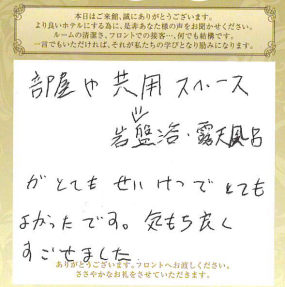 本日はご来館、誠にありがとうございます。
より良いホテルにする為に、是非あなた様の声をお聞かせください。
ルームの清潔さ、フロントでの接客…、何でも結構です。
一言でもいただければ、それが私たちの学びとなり励みになります。
部屋や共用スペース
岩盤浴・露天風呂
がとてもせいけつでとても
よかったです。気もち良く
すごせました
ありがとうございます。フロントへお渡しください。
ささやかなお礼をさせていただきます。